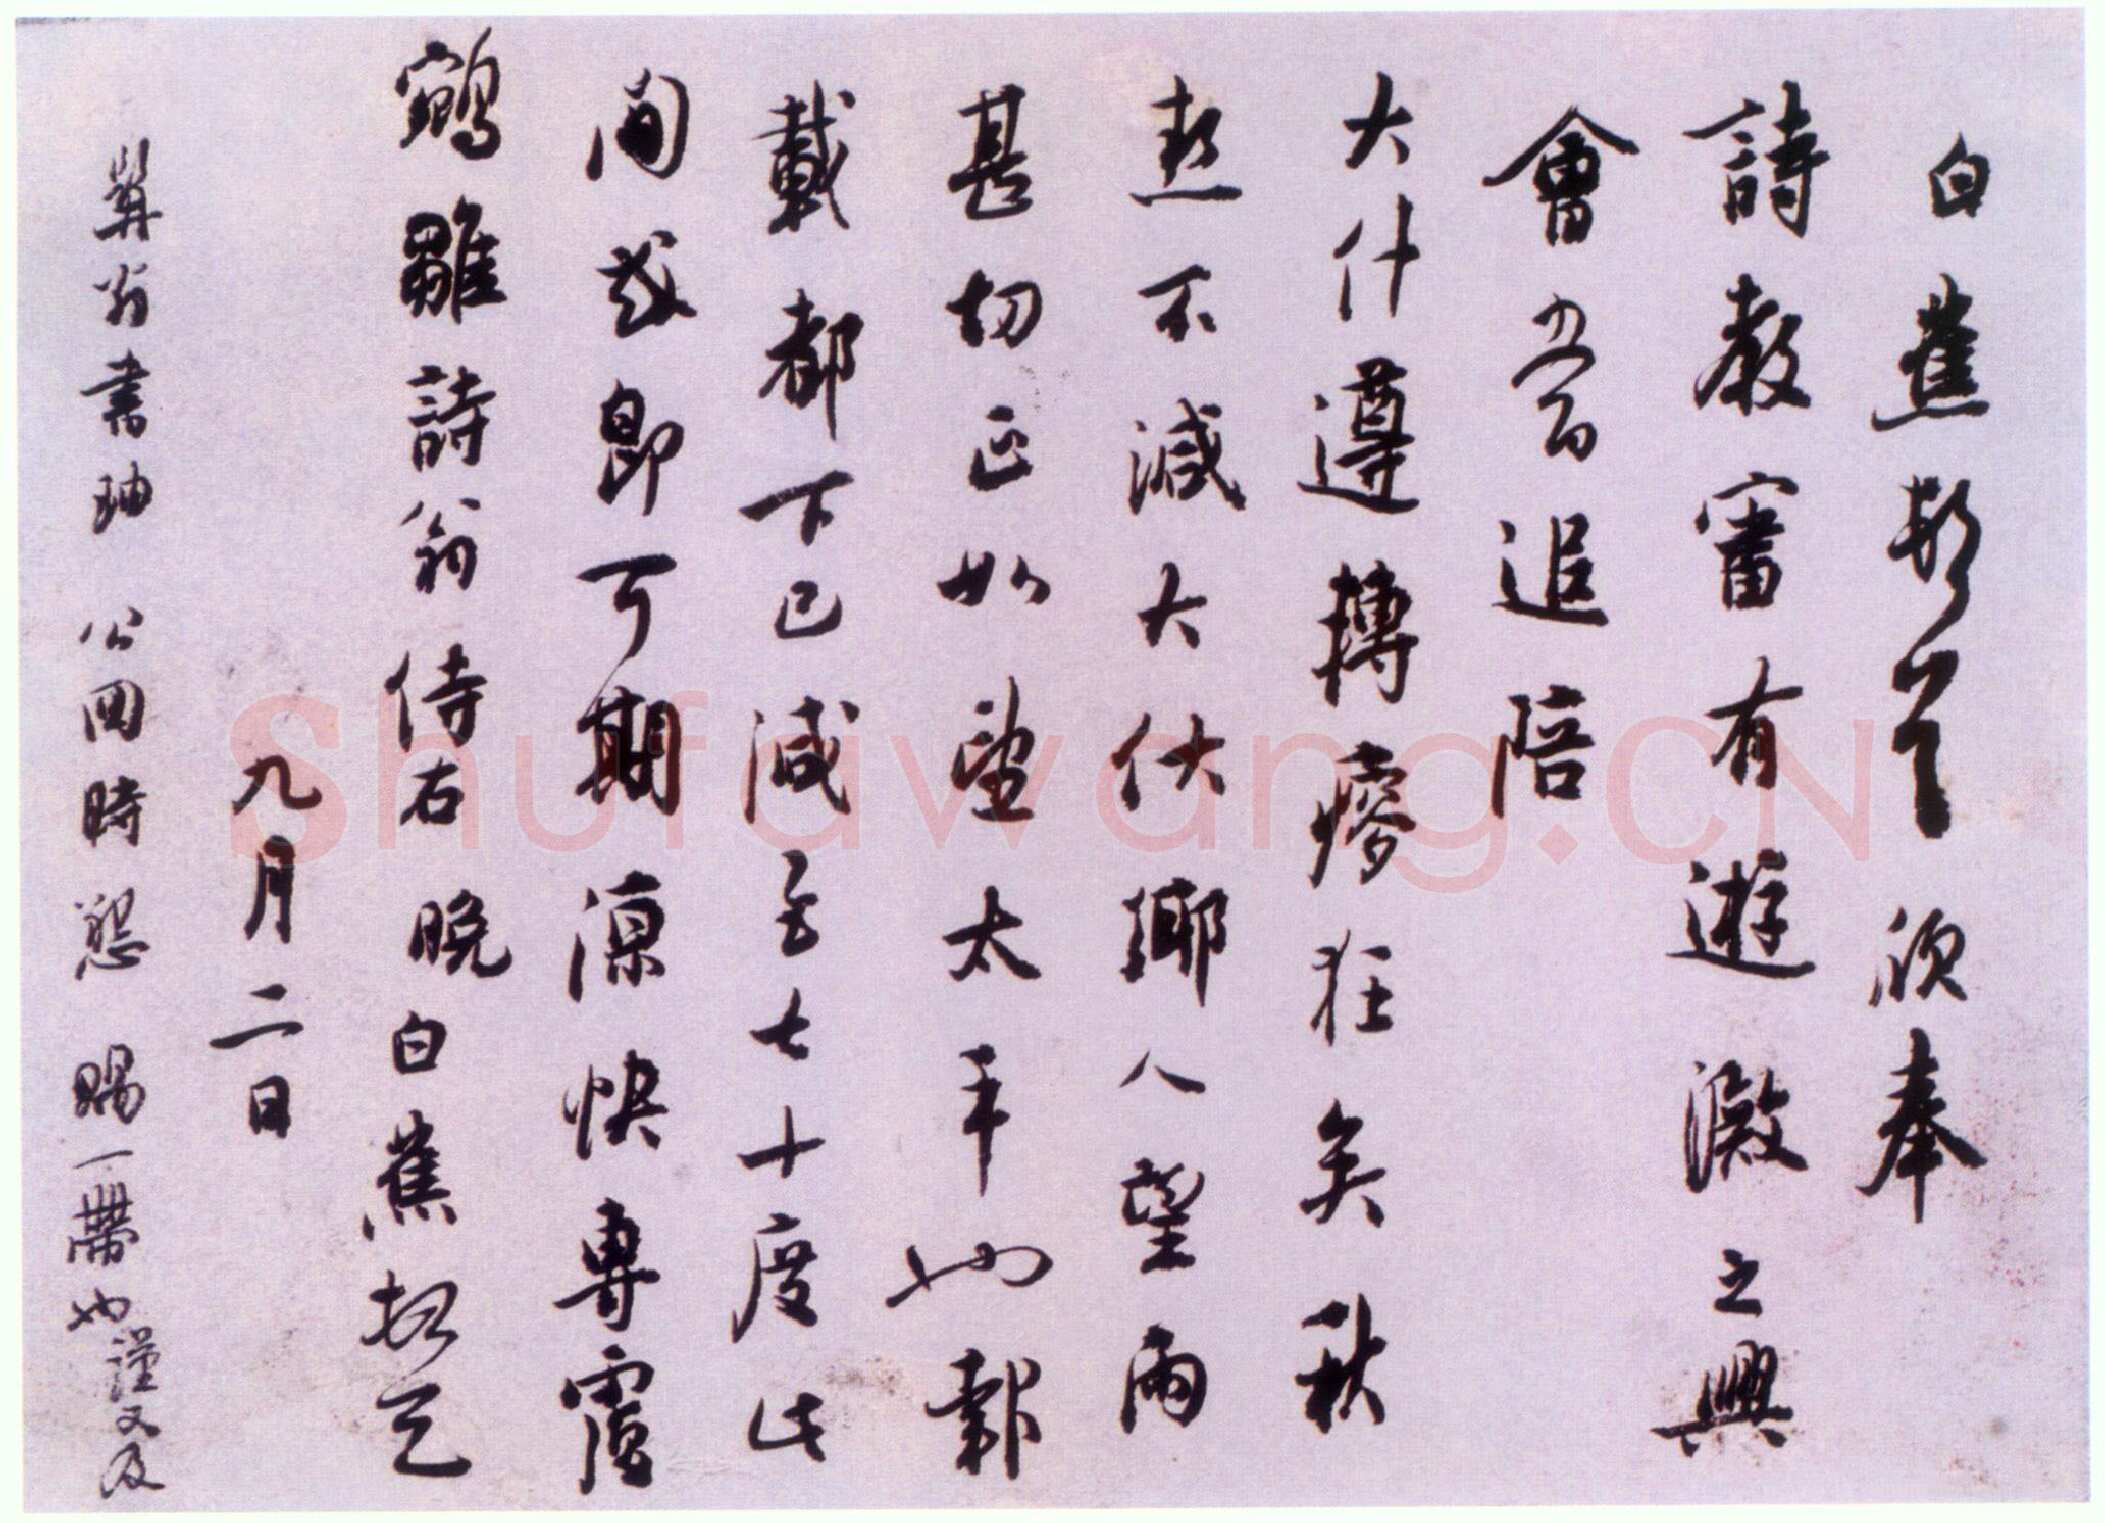 白蕉頓首欣奉
詩教審有遊瀲之興
會當追陪
大什遵摶瘳狂矣秋
熱不減大伏鄉人望雨
甚切正如望太平也報
載都下已減至七十度此
間或即可期凉快專覆
鵷雛詩翁侍右 晚白蕉拜上
九月二日
巽翁書軸 公回時懇 賜一帶也謹又及
Shufawang.CN